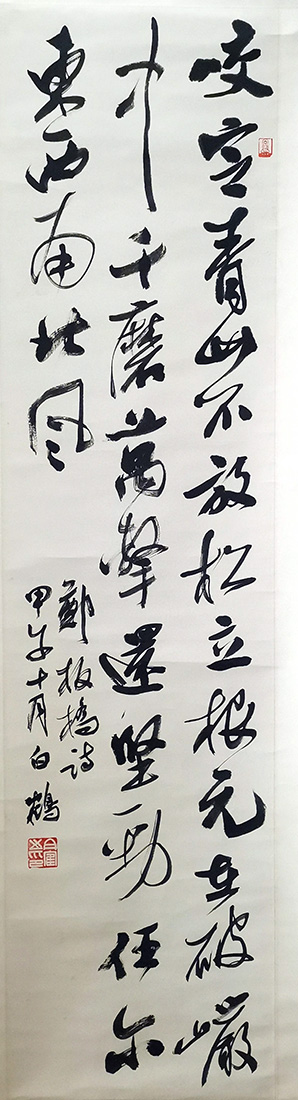 咬定青山不放松立根元在破巖
中千磨萬擊還堅勁任尔
東西南北风
鄭板橋詩
甲午十月白鶴